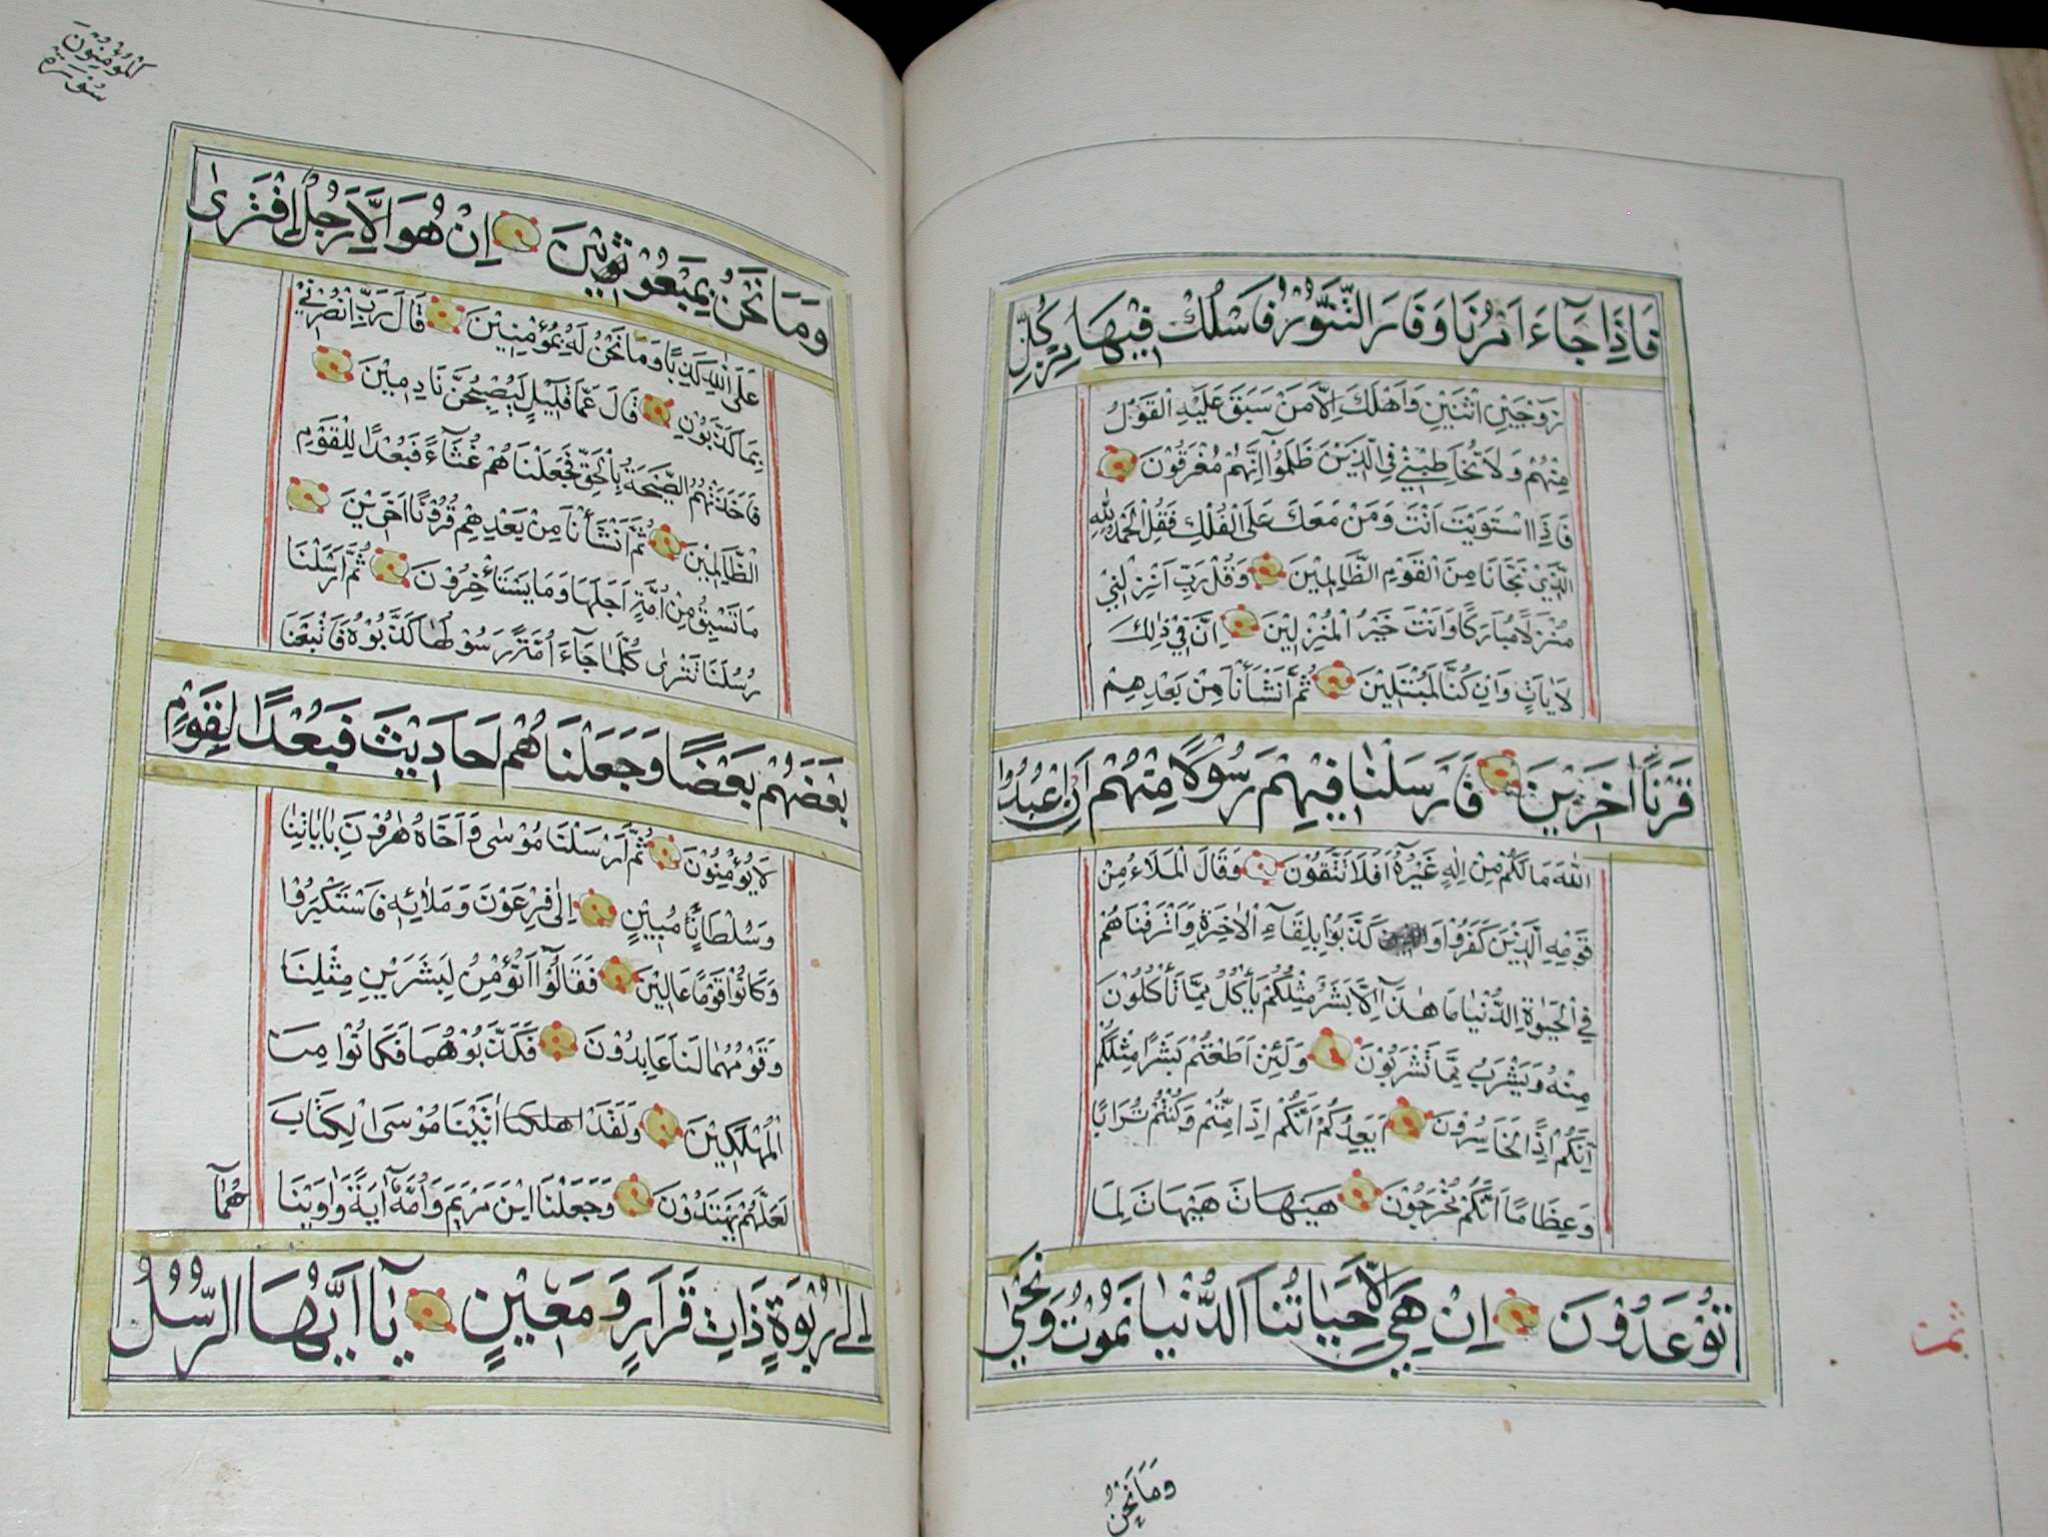 فَاِذَا جَآءَ اَمْرُنَا وَفَارَ التَّنُّوْرُ فَاسْلُكْ فِيْهَا مِنْ كُلٍّ
زَوْجَيْنِ اثْنَيْنِ وَاَهْلَكَ اِلَّا مَنْ سَبَقَ عَلَيْهِ الْقَوْلُ
مِنْهُمْ وَلَا تُخَاطِبْنِيْ فِي الَّذِيْنَ ظَلَمُوْا اِنَّهُمْ مُغْرَقُوْنَ
فَاِذَا اسْتَوَيْتَ اَنْتَ وَمَنْ مَعَكَ عَلَى الْفُلْكِ فَقُلِ الْحَمْدُ لِلّٰهِ
الَّذِيْ نَجَّانَا مِنَ الْقَوْمِ الظَّالِمِيْنَ وَقُلْ رَبِّ اَنْزِلْنِيْ
مُنْزَلًا مُبَارَكًا وَاَنْتَ خَيْرُ الْمُنْزِلِيْنَ اِنَّ فِيْ ذٰلِكَ
لَاٰيَاتٍ وَاِنْ كُنَّا لَمُبْتَلِيْنَ ثُمَّ اَنْشَأْنَا مِنْ بَعْدِهِمْ
قَرْنًا اٰخَرِيْنَ فَاَرْسَلْنَا فِيْهِمْ رَسُوْلًا مِنْهُمْ اَنِ اعْبُدُوا
اللّٰهَ مَا لَكُمْ مِنْ اِلٰهٍ غَيْرُهٗ اَفَلَا تَتَّقُوْنَ وَقَالَ الْمَلَاءُ مِنْ
قَوْمِهِ الَّذِيْنَ كَفَرُوْا وَ كَذَّبُوْا بِلِقَآءِ الْاٰخِرَةِ وَاَتْرَفْنَاهُمْ
فِي الْحَيٰوةِ الدُّنْيَا مَا هٰذَآ اِلَّا بَشَرٌ مِثْلُكُمْ يَأْكُلُ مِمَّا تَأْكُلُوْنَ
مِنْهُ وَيَشْرَبُ مِمَّا تَشْرَبُوْنَ وَلَئِنْ اَطَعْتُمْ بَشَرًا مِثْلَكُمْ
اِنَّكُمْ اِذًا لَخَاسِرُوْنَ اَيَعِدُكُمْ اَنَّكُمْ اِذَا مِتُّمْ وَكُنْتُمْ تُرَابًا
وَعِظَامًا اَنَّكُمْ مُخْرَجُوْنَ هَيْهَاتَ هَيْهَاتَ لِمَا
تُوْعَدُوْنَ اِنْ هِيَ اِلَّا حَيَاتُنَا الدُّنْيَا نَمُوْتُ وَنَحْيٰى
ثمن
وَمَا نَحْنُ
سُوْرَةُ
الْمُؤْمِنُوْنَ
وَمَا نَحْنُ بِمَبْعُوْثِيْنَ اِنْ هُوَ اِلَّا رَجُلٌ افْتَرٰى
عَلَى اللّٰهِ كَذِبًا وَمَا نَحْنُ لَهٗ بِمُؤْمِنِيْنَ قَالَ رَبِّ انْصُرْنِيْ
بِمَا كَذَّبُوْنِ قَالَ عَمَّا قَلِيْلٍ لَيُصْبِحُنَّ نَادِمِيْنَ
فَاَخَذَتْهُمُ الصَّيْحَةُ بِالْحَقِّ فَجَعَلْنَاهُمْ غُثَآءً فَبُعْدًا لِلْقَوْمِ
الظَّالِمِيْنَ ثُمَّ اَنْشَأْنَا مِنْ بَعْدِهِمْ قُرُوْنًا اٰخَرِيْنَ
مَا تَسْبِقُ مِنْ اُمَّةٍ اَجَلَهَا وَمَا يَسْتَأْخِرُوْنَ ثُمَّ اَرْسَلْنَا
رُسُلَنَا تَتْرٰى كُلَّمَا جَآءَ اُمَّةً رَسُوْلُهَا كَذَّبُوْهُ فَاَتْبَعْنَا
بَعْضَهُمْ بَعْضًا وَجَعَلْنَاهُمْ اَحَادِيْثَ فَبُعْدًا لِقَوْمٍ
لَا يُؤْمِنُوْنَ ثُمَّ اَرْسَلْنَا مُوْسٰى وَاَخَاهُ هٰرُوْنَ بِاٰيَاتِنَا
وَسُلْطَانٍ مُبِيْنٍ اِلٰى فِرْعَوْنَ وَمَلَائِهٖ فَاسْتَكْبَرُوْا
وَكَانُوْا قَوْمًا عَالِيْنَ فَقَالُوْٓا اَنُؤْمِنُ لِبَشَرَيْنِ مِثْلِنَا
وَقَوْمُهُمَا لَنَا عَابِدُوْنَ فَكَذَّبُوْهُمَا فَكَانُوْا مِنَ
الْمُهْلَكِيْنَ وَلَقَدْ اهلكنا اٰتَيْنَا مُوْسَى الْكِتَابَ
لَعَلَّهُمْ يَهْتَدُوْنَ وَجَعَلْنَا ابْنَ مَرْيَمَ وَاُمَّهٗٓ اٰيَةً وَاٰوَيْنَا
هُمَآ
اِلٰى رَبْوَةٍ ذَاتِ قَرَارٍ وَمَعِيْنٍ يَآ اَيُّهَا الرُّسُلُ